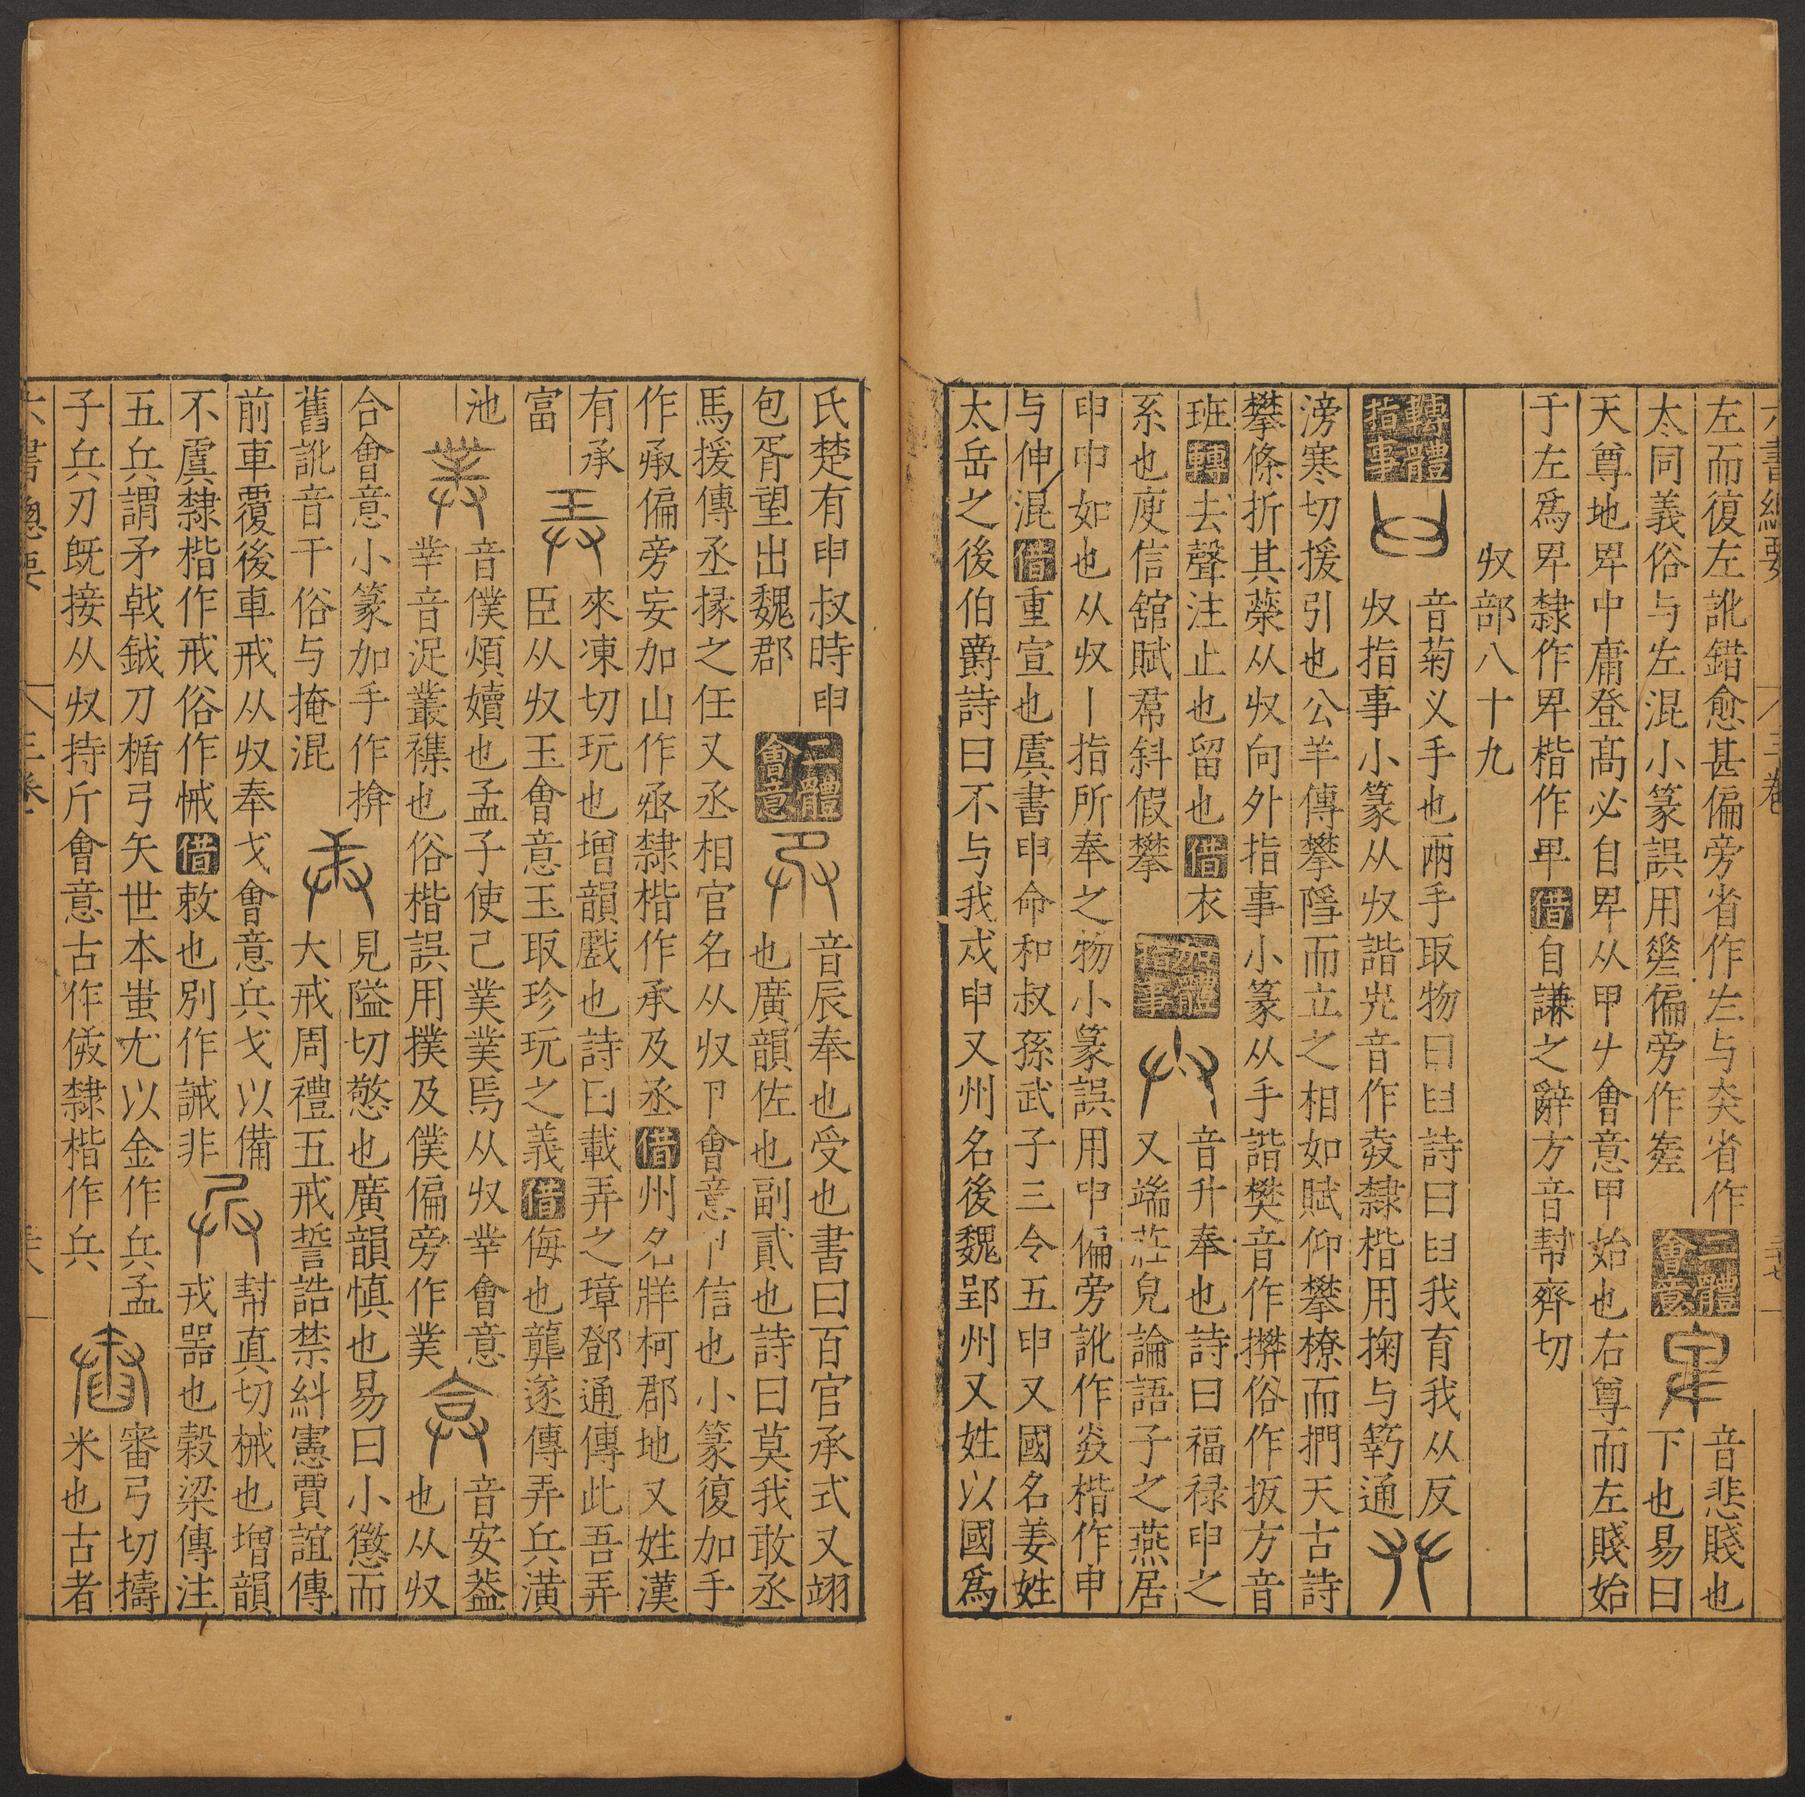 六書總要 三卷 三十七
左而復左訛錯愈甚偏旁省作𠂇与 省作 二體會意 音悲賤也
太同義俗与左混小篆誤用 偏旁作差 下也易曰
天尊地卑中庸登髙必自卑从甲𠂇會意甲始也右尊而左賤始
于左爲卑隸作卑楷作卑借自謙之辭方音幫齊切
収部八十九
轉體指事 音菊义手也兩手取物曰𦥑詩曰𦥑我育我从反
収指事小篆从収諧 音作 隸楷用掬与 通
滂寒切援引也公羊傳攀隥而立之相如賦仰攀橑而捫天古詩
攀條折其榮从収向外指事小篆从手諧樊音作㩯俗作扳方音
班轉去聲注止也留也借衣 加體指事 音升奉也詩曰福祿申之
系也庾信舘賦帬斜假攀 又端莊皃論語子之燕居
申申如也从収丨指所奉之物小篆誤用申偏旁訛作 楷作申
与伸混借重宣也虞書申命和叔孫武子三令五申又國名姜姓
太岳之後伯爵詩曰不与我戍申又州名後魏郢州又姓以國爲
氏楚有申叔時申 二體會意 音辰奉也受也書曰百官承式又翊
包胥望出魏郡 也廣韻佐也副貳也詩曰莫我敢丞
馬援傳丞掾之任又丞相官名从収卩會意卩信也小篆復加手
作承偏旁妄加山作丞隸楷作承及丞借州名牂柯郡地又姓漢
有承 來凍切玩也增韻戲也詩曰載弄之璋鄧通傳此吾弄
富 臣从収玉會意玉取珍玩之義借侮也龔遂傳弄兵潢
池 音僕煩嬻也孟子使己菐菐焉从収丵會意 音安葢
丵音浞叢襍也俗楷誤用撲及僕偏旁作業 也从収
合會意小篆加手作揜 見隘切憼也廣韻慎也易曰小懲而
舊訛音干俗与掩混 大戒周禮五戒誓誥禁糾憲賈誼傳
前車覆後車戒从収奉戈會意兵戈以備 幫真切械也增韻
不虞隸楷作戒俗作悈借敕也別作誡非 戎器也榖梁傳注
五兵謂矛戟鉞刀楯弓矢世本蚩尤以金作兵孟 審弓切擣
子兵刃旣接从収持斤會意古作㑁隸楷作兵 米也古者
六書總要 三卷 三十八